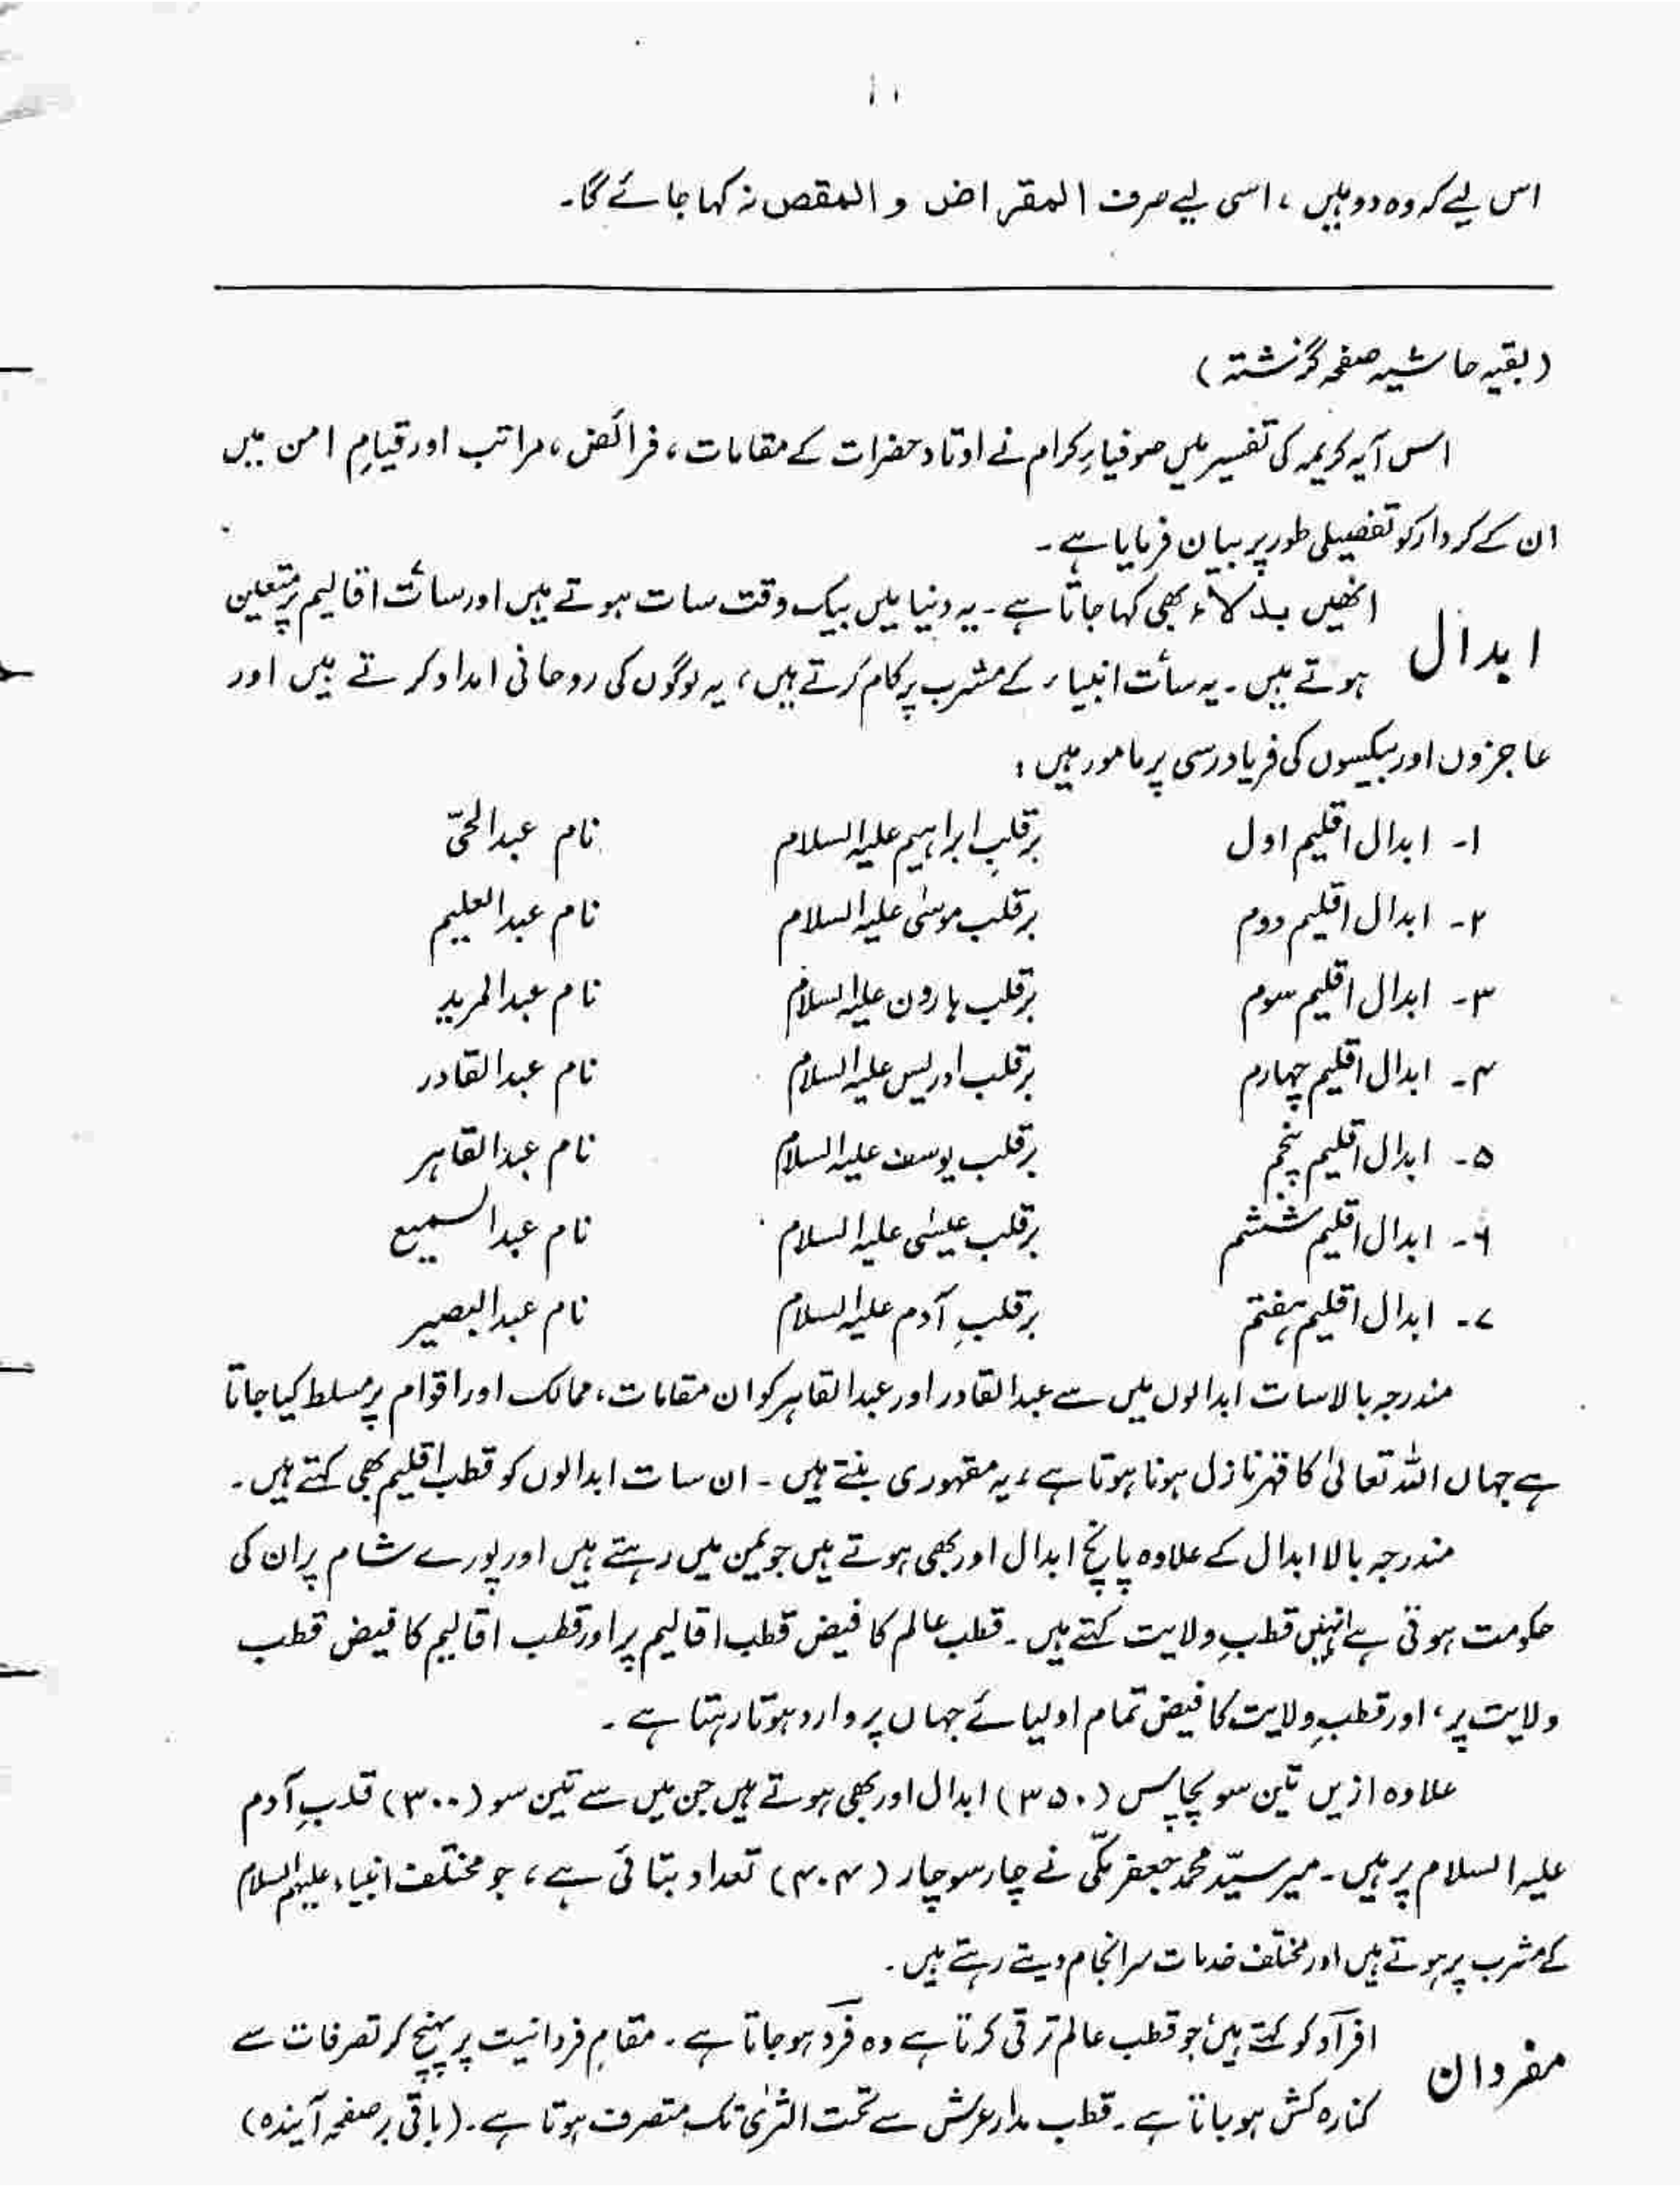 ۱۱
اس لیے کہ وہ دو ہیں ، اسی لیے صرف المقراض و المقص نہ کہا جائے گا۔
(بقیہ حاشیہ صفحہ گزشتہ)
اس آیہ کریمہ کی تفسیر میں صوفیاءِ کرام نے اوتاد حضرات کے مقامات ، فرائض ، مراتب اور قیامِ امن میں
ان کے کردار کو تفصیلی طور پر بیان فرمایا ہے ۔
ابدال انھیں بدلاء بھی کہا جاتا ہے ۔ یہ دنیا میں بیک وقت سات ہوتے ہیں اور سات اقالیم پر متعین
ہوتے ہیں ۔ یہ سات انبیاء کے مشرب پر کام کرتے ہیں ، یہ لوگوں کی روحانی امداد کرتے ہیں اور
عاجزوں اور بیکسوں کی فریاد رسی پر مامور ہیں :
۱۔ ابدال اقلیم اول برقلبِ ابراہیم علیہ السلام نام عبدالحیّ
۲۔ ابدال اقلیم دوم برقلب موسٰی علیہ السلام نام عبدالعلیم
۳۔ ابدال اقلیم سوم برقلب ہارون علیہ السلام نام عبدالمرید
۴۔ ابدال اقلیم چہارم برقلب ادریس علیہ السلام نام عبدالقادر
۵۔ ابدال اقلیم پنجم برقلب یوسف علیہ السلام نام عبدالقاہر
۶۔ ابدال اقلیم ششم برقلب عیسٰی علیہ السلام نام عبدالسمیع
۷۔ ابدال اقلیم ہفتم برقلبِ آدم علیہ السلام نام عبدالبصیر
مندرجہ بالا سات ابدالوں میں سے عبدالقادر اور عبدالقاہر کو ان مقامات ، ممالک اور اقوام پر مسلط کیا جاتا
ہے جہاں اللہ تعالیٰ کا قہر نازل ہونا ہوتا ہے ، یہ مقہوری بنتے ہیں ۔ ان سات ابدالوں کو قطب اقلیم بھی کہتے ہیں ۔
مندرجہ بالا ابدال کے علاوہ پانچ ابدال اور بھی ہوتے ہیں جو یمن میں رہتے ہیں اور پورے شام پر ان کی
حکومت ہوتی ہے انہیں قطبِ ولایت کہتے ہیں ۔ قطب عالم کا فیض قطب اقالیم پر اور قطب اقالیم کا فیض قطب
ولایت پر ، اور قطبِ ولایت کا فیض تمام اولیائے جہاں پر وارد ہوتا رہتا ہے ۔
علاوہ ازیں تین سو پچاس (۳۵۰) ابدال اور بھی ہوتے ہیں جن میں سے تین سو (۳۰۰) قلبِ آدم
علیہ السلام پر ہیں ۔ میر سیّد محمد جعفر مکّی نے چار سو چار (۴۰۴) تعداد بتائی ہے ، جو مختلف انبیاء علیہم السلام
کے مشرب پر ہوتے ہیں اور مختلف خدمات سرانجام دیتے رہتے ہیں ۔
مفردان افراد کو کہتے ہیں جو قطب عالم ترقی کرتا ہے وہ فرد ہو جاتا ہے ۔ مقامِ فردانیت پر پہنچ کر تصرفات سے
کنارہ کش ہو جاتا ہے ۔ قطب مدار عرش سے تحت الثریٰ تک متصرف ہوتا ہے ۔ (باقی بر صفحہ آیندہ)